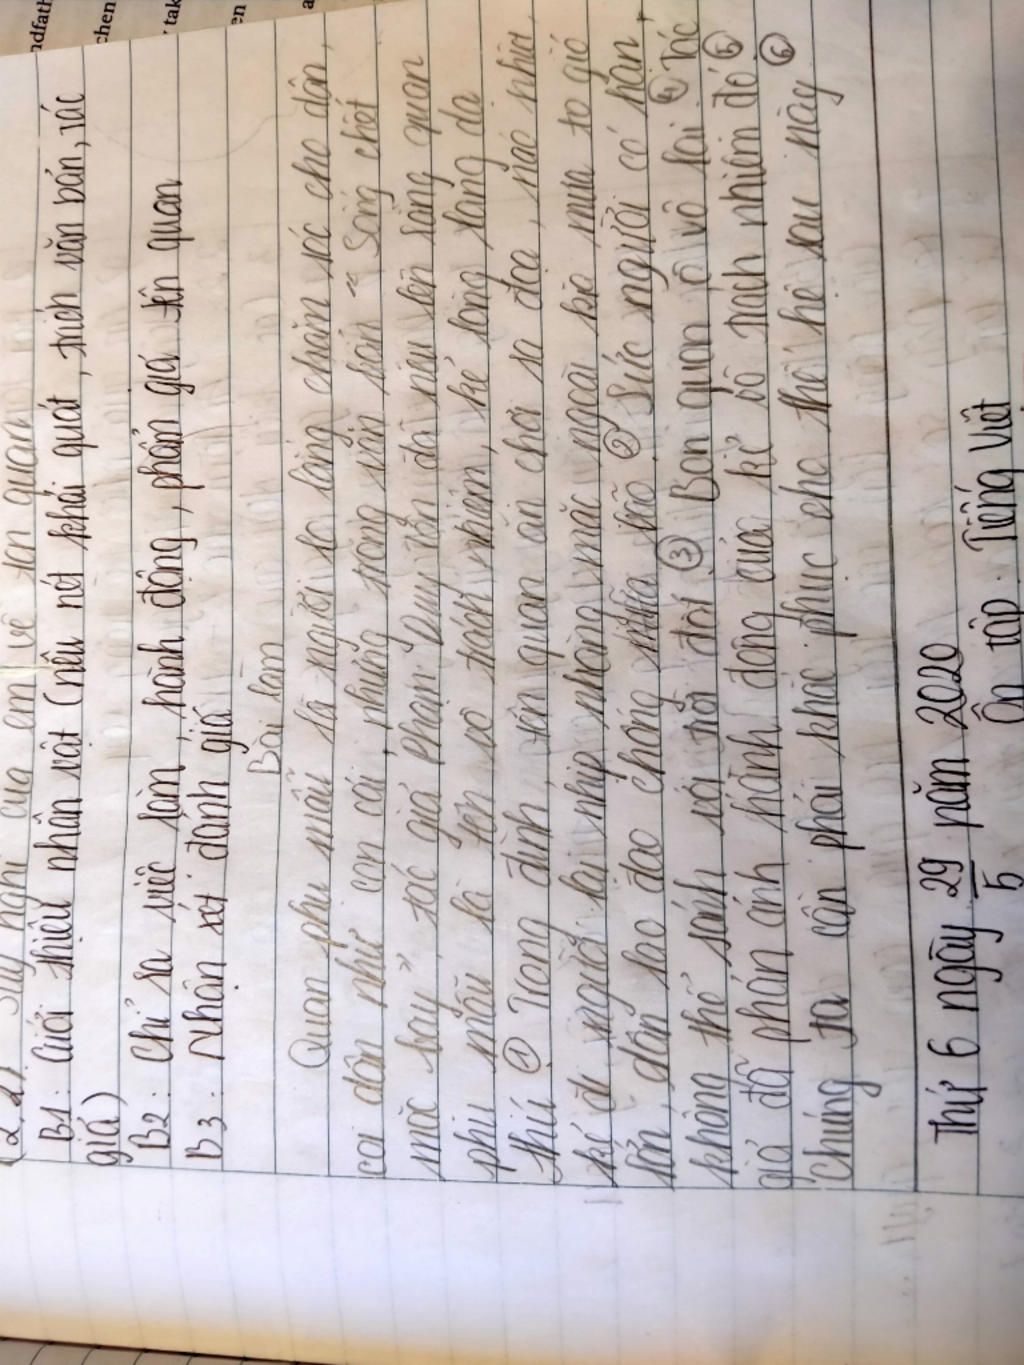 2.2. Suy nghĩ của em về tên quan
B1: Giới thiệu nhân vật (nêu nét khái quát, trích văn bản, tác
giả)
B2: Chỉ ra việc làm, hành động, phẩm giá tên quan
B3: Nhận xét đánh giá
Bài làm
Quan phụ mẫu là người lo lắng chăm sóc cho dân,
coi dân như con cái, nhưng trong văn bản " Sống chết
mặc bay " tác giả Phạm Duy Tốn đã nêu lên rằng quan
phụ mẫu là tên vô trách nhiệm, kẻ lòng lang dạ
thú ① Trong đình, tên quan ăn chơi sa đọa, nào nhà,
kẻ đi người lại nhịp nhàng mặc ngoài kia mưa to gió
lớn, dân lao đao chống vỡ đê ② Sức người có hạn,
không thể sánh với trời đất ③ Bọn quan ở vô lại ④ Tác
giả đã phản ánh hành động của kẻ vô trách nhiệm đó ⑤
Chúng ta cần phải khắc phục cho thế hệ sau này ⑥
Thứ 6 ngày 29 năm 2020
5
Ôn tập Tiếng Việt
ndfath
chen
tak
en
a